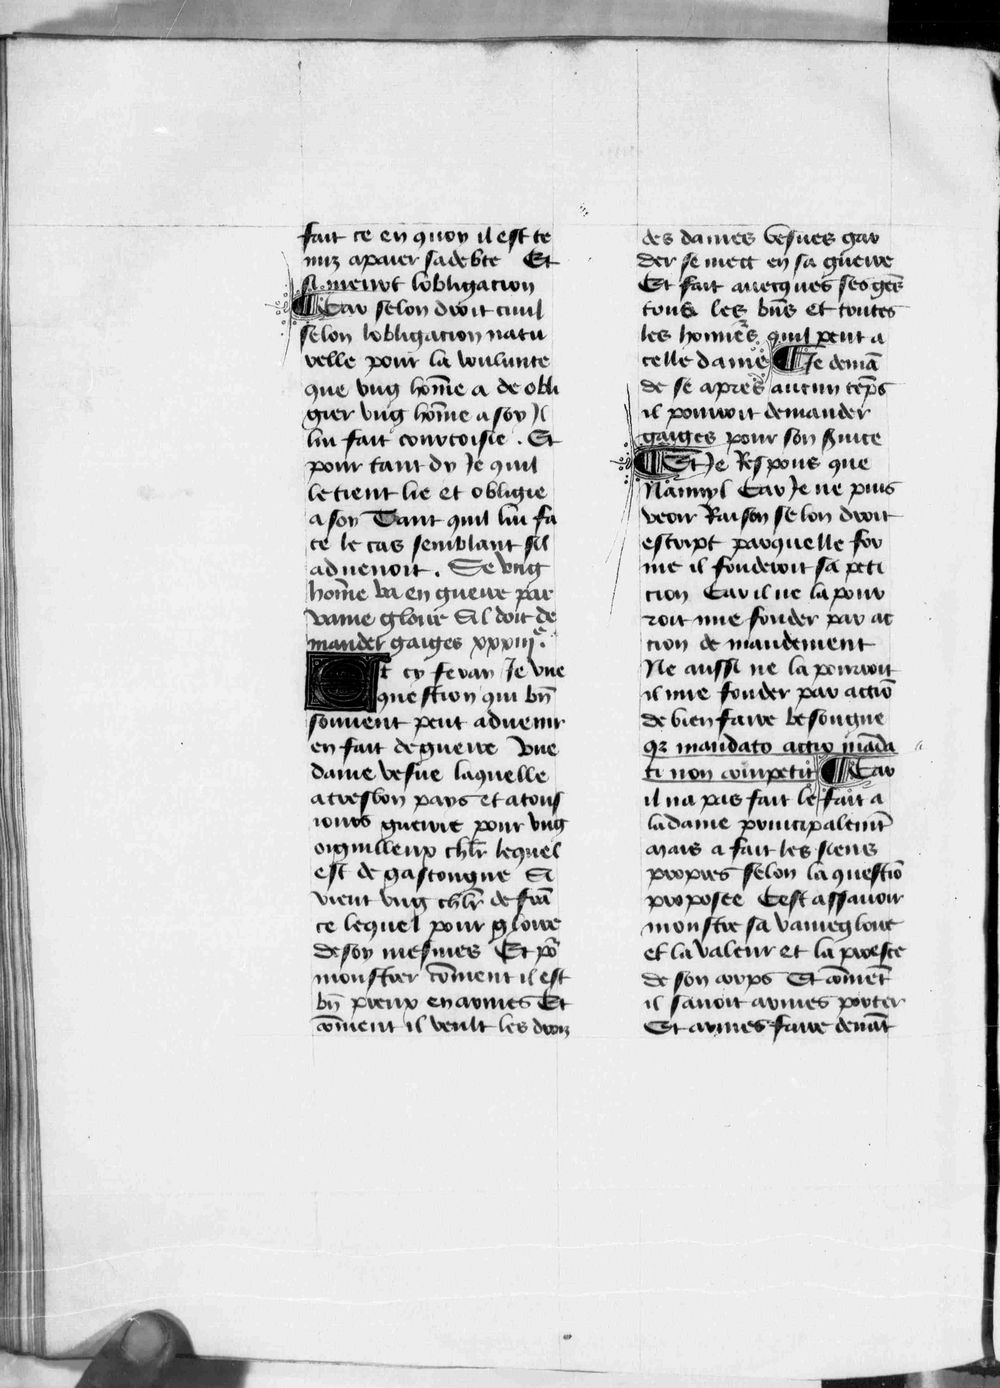 fait ce en quoy il est te
nuz apaier sadebte Et
si menrot lobligacion
Car selon droit ciuil
selon lobligacion natu
relle pour la voulunte
que vng hom̄e a de obli
gier vng hom̄e a soy Il
lui fait courtoisie . Et
pour tant dy Je quil
le tient lie et obligie
a soy Tant quil lui fa
ce le cas semblant sil
aduenoit . Se vng
hom̄e va en guerre par
vaine gloire Sil doit de
mander gaiges xxxiiijᵉ.
Et cy feray Je vne
question qui bn̄
souuent peut aduenir
en fait deguerre Vne
dame vesue laquelle
a tresbon pays et a tous
iours guerre pour vng
orguilleux chlr̄ lequel
est de gascongne Si
vient vng chlr̄ de frā
ce lequel pour gloire
de soy mesmes Et po᷑
monstrer cōment il est
bn̄ preux en armes Et
cōment il veult les droiz
des dames vesues gar
der se mect en sa guerre
Et fait auecques ses gēs
tous les bn̄s et toutes
les honnēs quil peut a
celle dame Je demā
de se apres aucun tēps
il pourroit demander
gaiges pour son s̄uice
Et Je Respons que
Nannyl Car Je ne puis
veoir Raison selon droit
escript parquelle for
me il fonderoit sa peti
cion Car il ne la pour
roit mie fonder par ac
cion de mandement
Ne aussi ne la pourroit
il mie fonder par actiō
de bien faire besongne
qꝛ mandato actio mād̄a
ti non competit Car
il na pas fait le fait a
ladame principalemt̄
Mais a fait les siens
propres selon la questiō
proposee Cest assauoir
monstre sa vainegloire
et la valeur et la proesce
de son corps Et cōmēt
il sauoit armes porter
Et armes faire deuāt